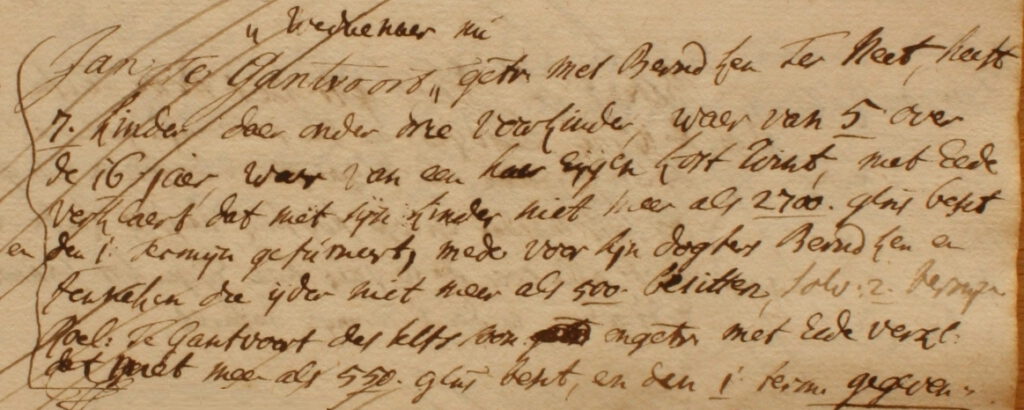 „ Weduenaer nu
Jan Te Gantvoort „ getr. met Berndken Ter Neet, heeft
7. kinder daer onder drie voorkinder, waer van 5 over
de 16 jaer, waer van een haer Eygen kost wint, met Eede
verklaert dat met sijn kinder niet meer als 2700. glns besit
en den 1: termijn gefurneert, mede voor sijn dogters Berndken en
die ijder niet meer als 500. besitten, solv: 2. termijn
Roel: Te Gantvoort des selfs soon ongetr. met Eede verkl:
dat niet meer als 550. glns besit, en den 1: term. gegeven.